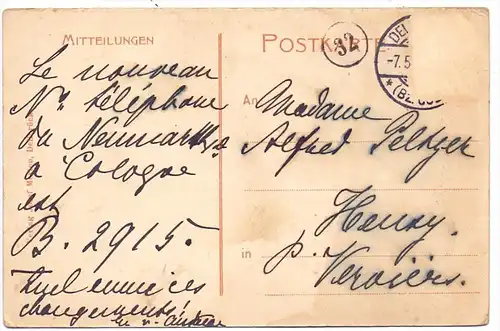 MITTEILUNGEN
Le nouveau
No téléphone
du Neumarkt
à Cologne
est
B. 2915.
Quel ennui ces
changements!
POSTKARTE
32
-7.5
An
Madame
Alfred Peltzer
Heusy.
in p. Verviers.